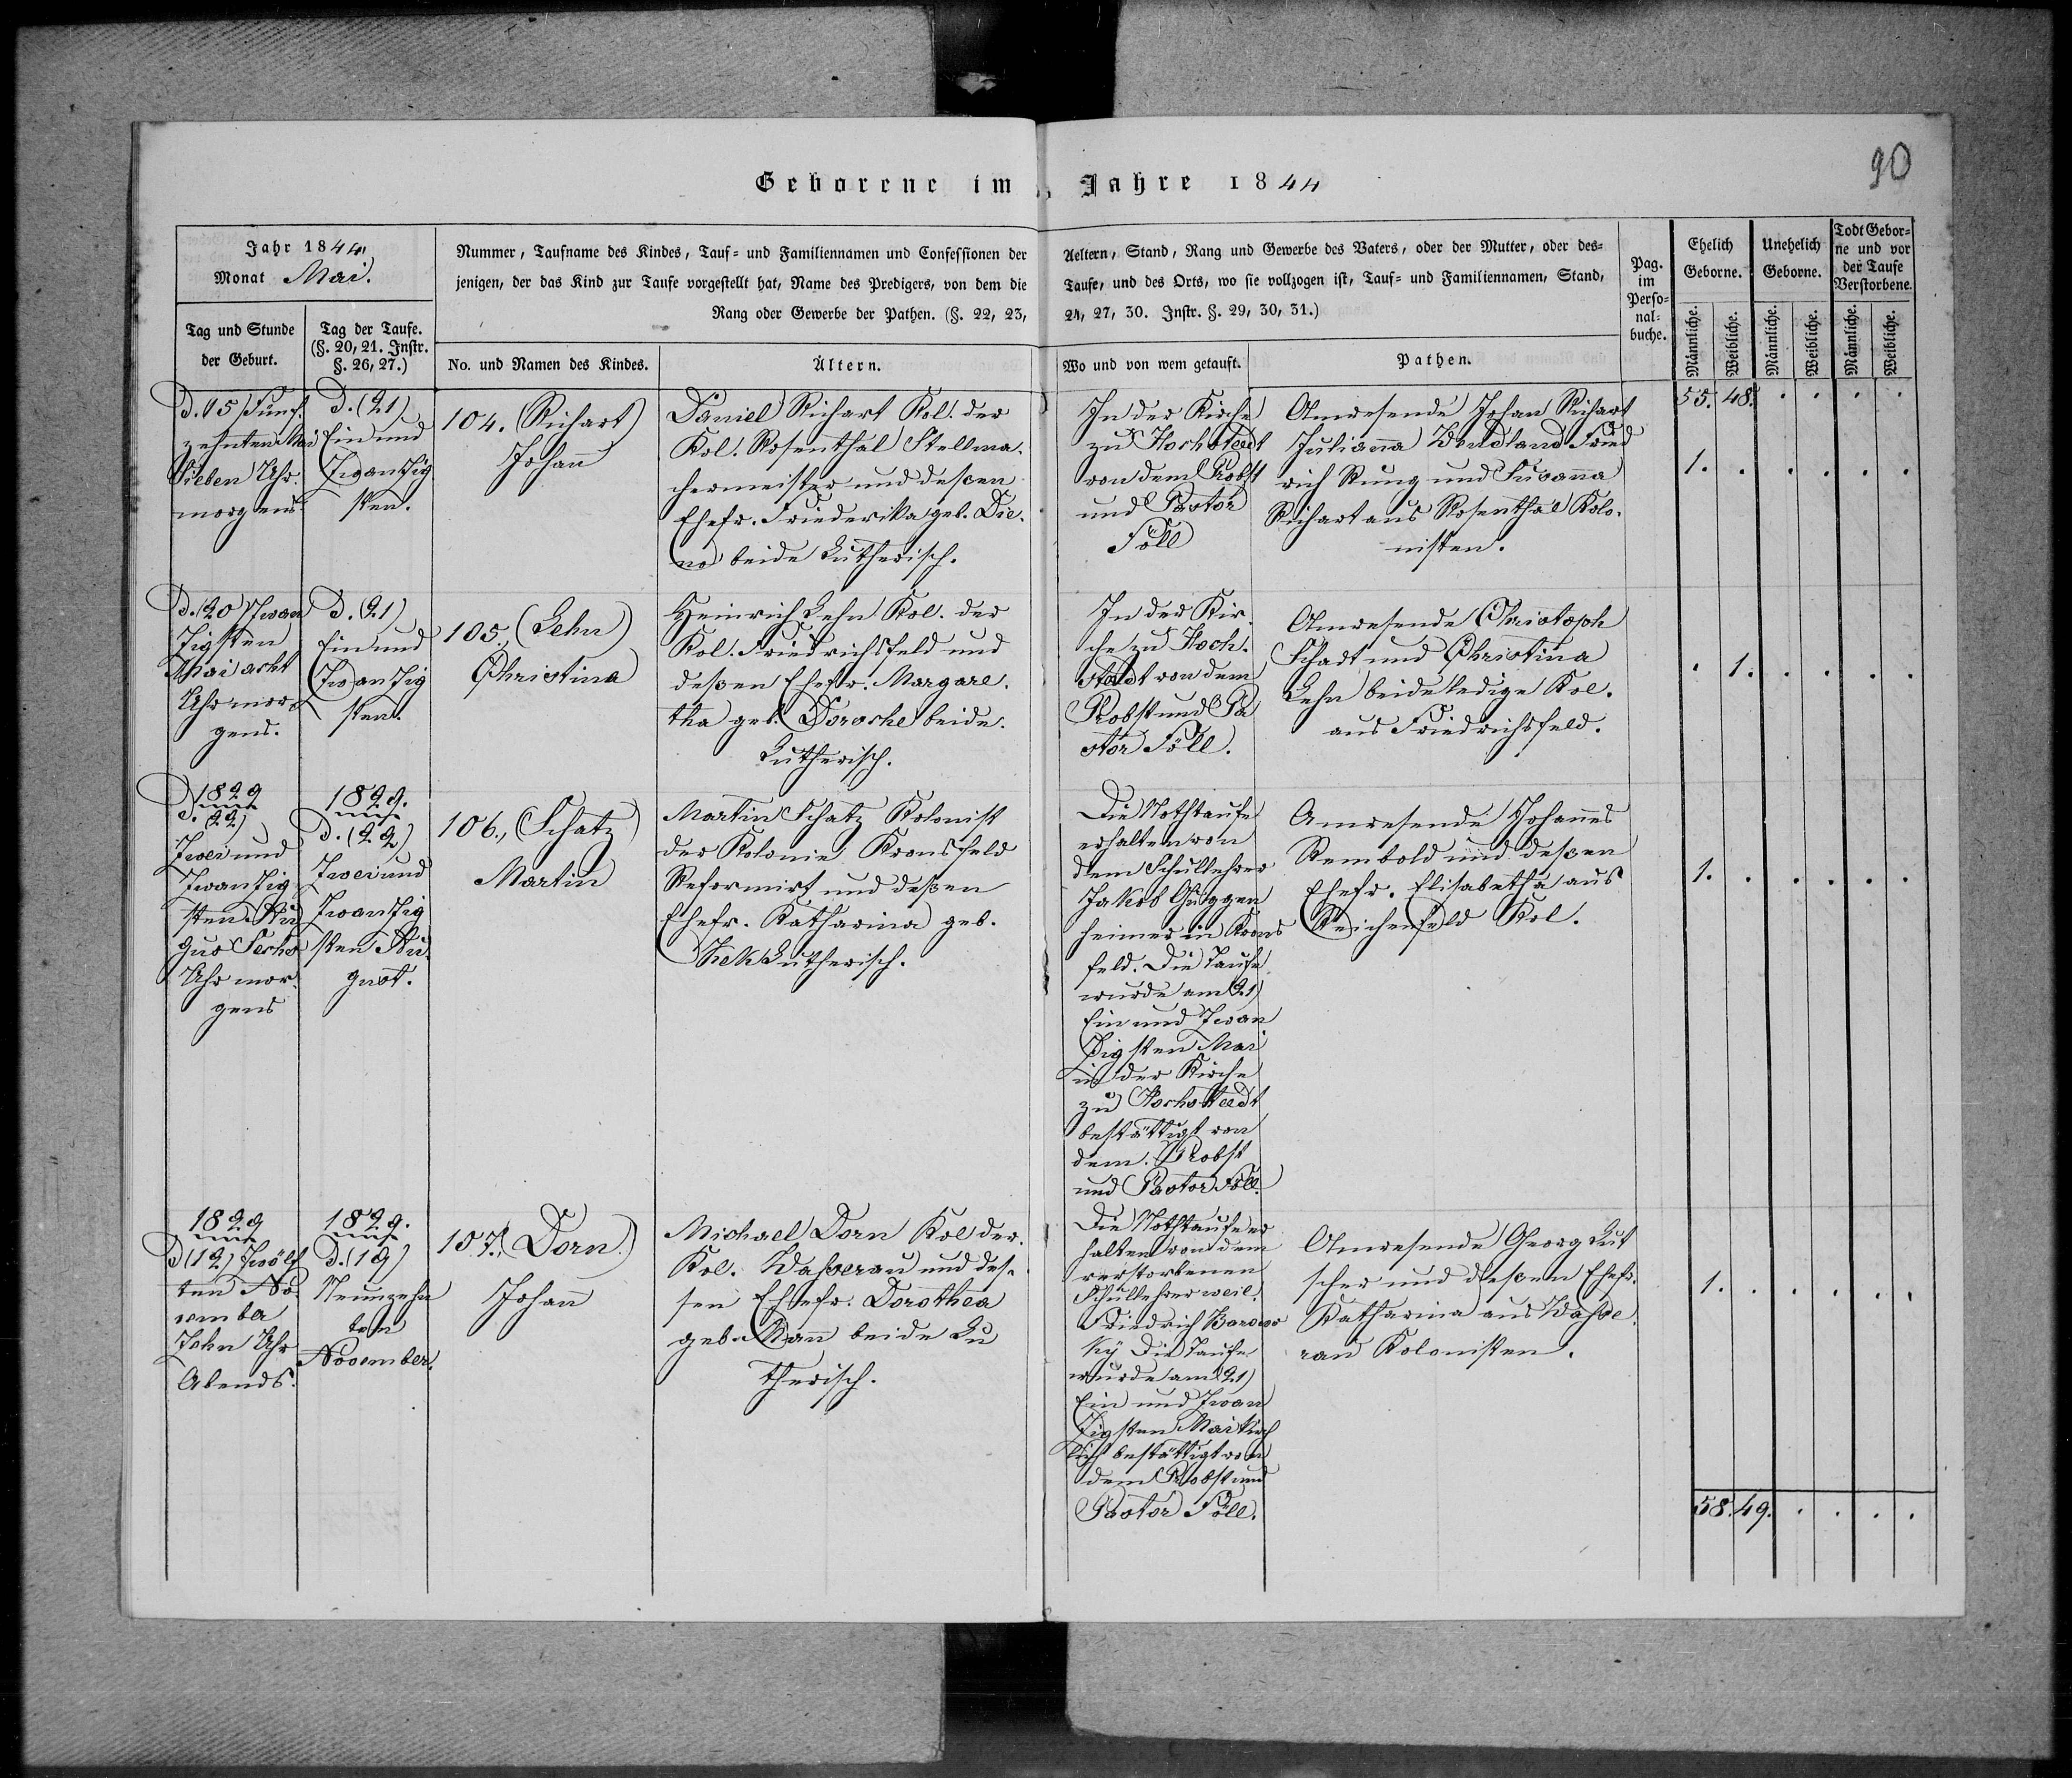 90
Geborene im Jahre 1844
Jahr 1844.
Monat Mai.
Nummer, Taufname des Kindes, Tauf- und Familiennamen und Confessionen der
jenigen, der das Kind zur Taufe vorgestellt hat, Name des Predigers, von dem die
Rang oder Gewerbe der Pathen. (§. 22, 23,
Tag und Stunde
der Geburt.
Tag der Taufe.
(§. 20, 21. Instr.
§. 26, 27.)
No. und Namen des Kindes.
Ältern.
Aeltern, Stand, Rang und Gewerbe des Vaters, oder der Mutter, oder des-
Taufe, und des Orts, wo sie vollzogen ist, Tauf- und Familiennamen, Stand,
24, 27, 30. Instr. §. 29, 30, 31.)
Wo und von wem getauft.
Pathen.
Pag.
im
Perso-
nal-
buche.
Ehelich
Geborne.
Unehelich
Geborne.
Todt Gebor-
ne und vor
der Taufe
Verstorbene.
Männliche.
Weibliche.
Männliche.
Weibliche.
Männliche.
Weibliche.
55. 48. . . . .
D. (15) Funf.
zehnten Mai
Sieben Uhr
morgens
D. (21)
Ein und
Zwanzig
sten.
104. (Richart)
Johan̄
Daniel Richart Kol. der
Kol. Rosenthal Stellma.
chermeister und deßen
Ehefr. Friederika geb. Die.
no beide Lutherisch.
In der Kirche
zu Hochstaedt
von dem Probst
und Pastor
Föll
Anwesende Johan Richart
Julian̄a Wendland Fried
rich Rung und Susan̄a
Richart aus Rosenthal Kolo.
nisten.
1. . . . . .
D. (20) Zwan
zigsten
Mai acht
Uhr mor
gens.
D. (21)
Ein und
Zwanzig
sten.
105. (Lehn)
Christina
Heinrich Lehn Kol. der
Kol. Friedrichsfeld und
deßen Ehefr. Margare.
tha geb. Dorosche beide
Lutherisch.
In der Kir.
che zu Hoch.
stadt von dem
Probst und Pa
stor Föll.
Anwesende Christoph
Schadt und Christina
Lehn beide ledige Kol.
aus Friedrichsfeld.
. 1. . . . .
1829
D. (22)
Zwei und
Zwanzig
sten Au
gus Sechs
Uhr mor.
gens
1829.
D. (22)
Zwei und
Zwanzig
sten Au.
gust.
106., (Schatz)
Martin
Martin Schatz Kolonist
der Kolonie Kronsfeld
Reformirt und deßen
Ehefr. Katharina geb.
Lutherisch.
Die Nothtaufe
erhalten von
dem Schullehrer
Jakob Guggen
heimer in Krons
feld. Die Taufe
wurde am (21)
Ein und Zwan
zigsten Mai
in der Kirche
zu Hochstaedt
bestättigt von
dem Probst
und Pastor Föll.
Anwesende Johan̄es
Rembold und deßen
Ehefr. Elisabetha aus
Reichenfeld Kol.
1. . . . . .
1829
D (12) Zwölf
ten No.
vember
Zehn Uhr
Abends.
1829.
D. (19)
Neunzehn
ten
November.
107. (Dorn.)
Johan̄
Michael Dorn Kol der.
Kol. Waßerau und des.
sen Ehefr. Dorothea
geb. beide Lu
therisch.
Die Nothtaufe er
halten von dem
verstorbenen
Schullehrer weil.
Friedrich Barows
ky Die Taufe
wurde am (21)
Ein und Zwan
zigsten Mai kirch
lich bestättigt von
dem Probst und
Pastor Föll.
Anwesende Georg Lut
scher und deßen Ehefr.
Katharina aus Waße.
rau Kolonisten.
1. . . . . .
58. 49. . . . .